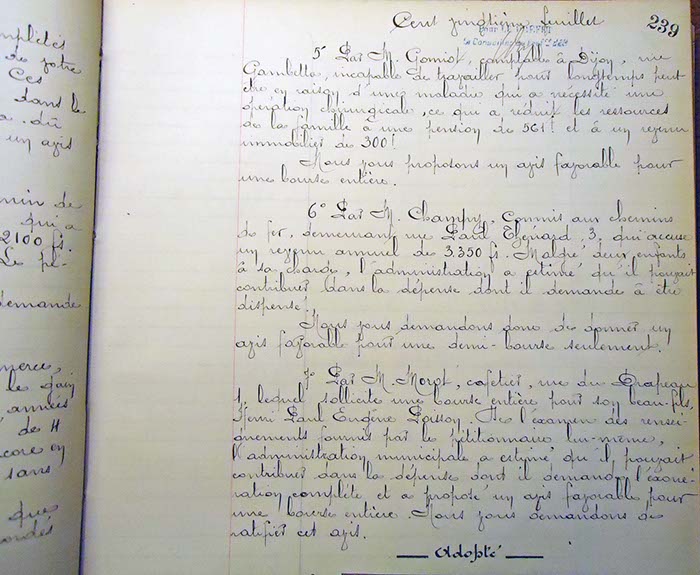 mplétés
de votre
Ces
dans le
a dû
un avis
min de
qui a
2100 fs.
Le pé-
demande
merce,
le quin
années
de H
core en
sans
que
cordés
Cent vingtième feuillet
239
Pour LE PREFET
5° Par M. Gomiot, comptable à Dijon, rue
Gambetta, incapable de travailler pour longtemps peut
être en raison d'une maladie qui a nécessité une
opération chirurgicale, ce qui a réduit les ressources
de la famille à une pension de 561f et à un revenu
immobilier de 300f
Nous vous proposons un avis favorable pour
une bourse entière.
6° Par M. Champy, Commis aux chemins
de fer, demeurant rue Paul Thénard, 3, qui accuse
un revenu annuel de 3.350 fs. Malgré deux enfants
à sa charge, l'administration a estimé qu'il pouvait
contribuer dans la dépense dont il demande à être
dispensé.
Nous vous demandons donc de donner un
avis favorable pour une demi-bourse seulement.
7° Par M. Morot, cafetier, rue du Drapeau
1, lequel sollicite une bourse entière pour son beau-fils,
Henri Paul Eugène Poisson. De l'examen des rensei-
gnements fournis par le pétitionnaire lui-même,
l'administration municipale a estimé qu'il pouvait
contribuer dans la dépense dont il demande l'exoné-
ration complète et a proposé un avis favorable pour
une bourse entière. Nous vous demandons de
ratifier cet avis.
Adopté